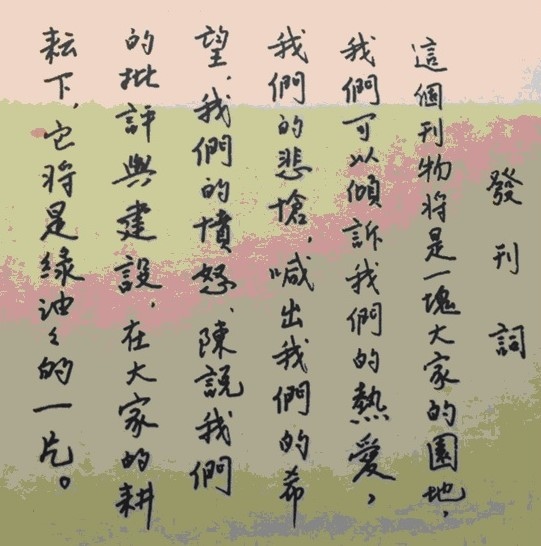 發刊詞
這個刊物將是一塊大家的園地，
我們可以傾訴我們的熱愛，
我們的悲愴，喊出我們的希
望、我們的憤怒、陳說我們
的批評與建設，在大家的耕
耘下，它將是綠油々的一片。